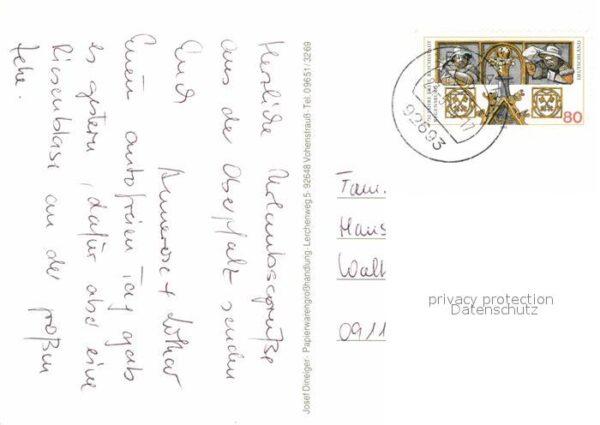 Herzliche Urlaubsgrüße
aus der Oberpfalz senden
Euch
Annerose + Lothar
Einen autofreien Tag gab
es gestern, dafür aber eine
Riesenblase an der großen
Zehe.
Josef Dineiger · Papierwarengroßhandlung · Lerchenweg 5 · 92648 Vohenstrauß · Tel. 09651/3269
DEUTSCHLAND
80
92693
Fam.
Hans
Walt
0911
privacy protection
Datenschutz